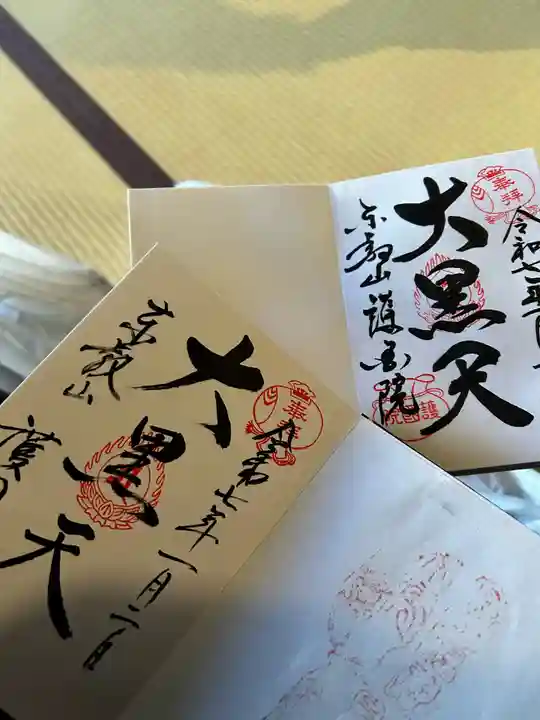 奉拝
令和七年
大黒天
東叡山 護国院
護國院
奉拝
令和七年一月二日
大黒天
東叡山
護